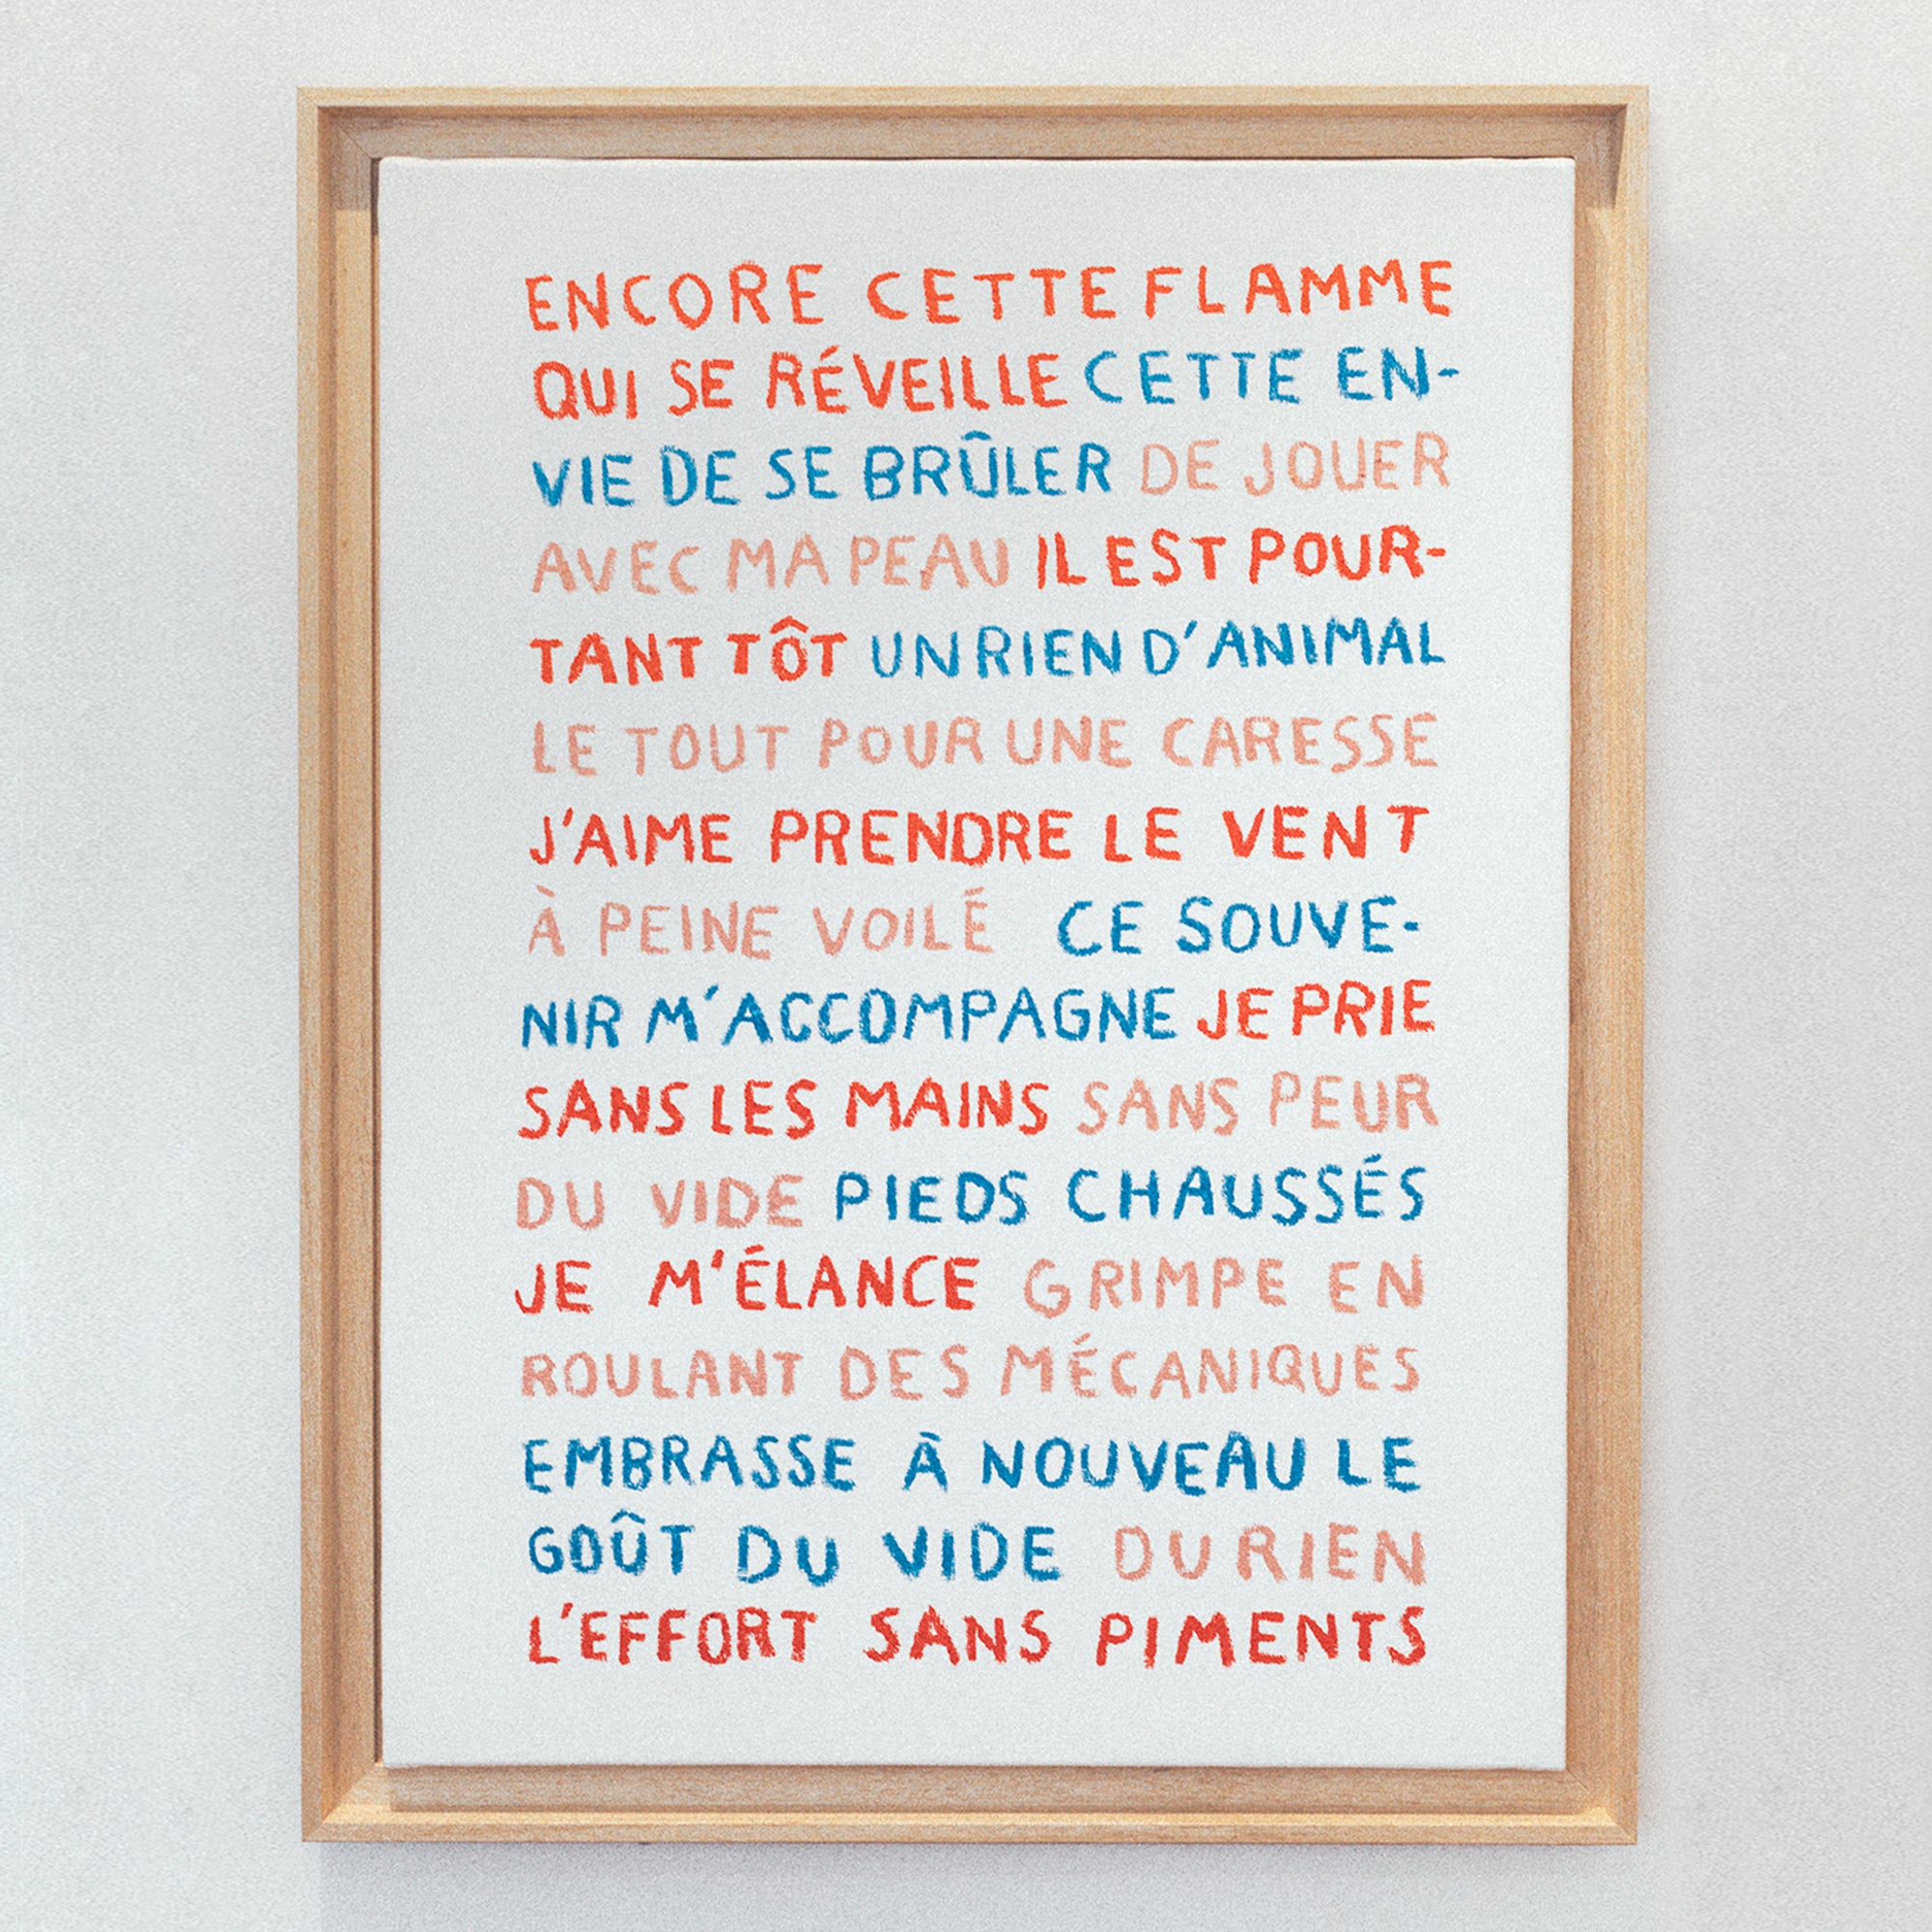 ENCORE CETTE FLAMME
QUI SE RÉVEILLE CETTE EN-
VIE DE SE BRÛLER DE JOUER
AVEC MA PEAU IL EST POUR-
TANT TÔT UN RIEN D'ANIMAL
LE TOUT POUR UNE CARESSE
J'AIME PRENDRE LE VENT
À PEINE VOILÉ CE SOUVE-
NIR M'ACCOMPAGNE JE PRIE
SANS LES MAINS SANS PEUR
DU VIDE PIEDS CHAUSSÉS
JE M'ÉLANCE GRIMPE EN
ROULANT DES MÉCANIQUES
EMBRASSE À NOUVEAU LE
GOÛT DU VIDE DU RIEN
L'EFFORT SANS PIMENTS